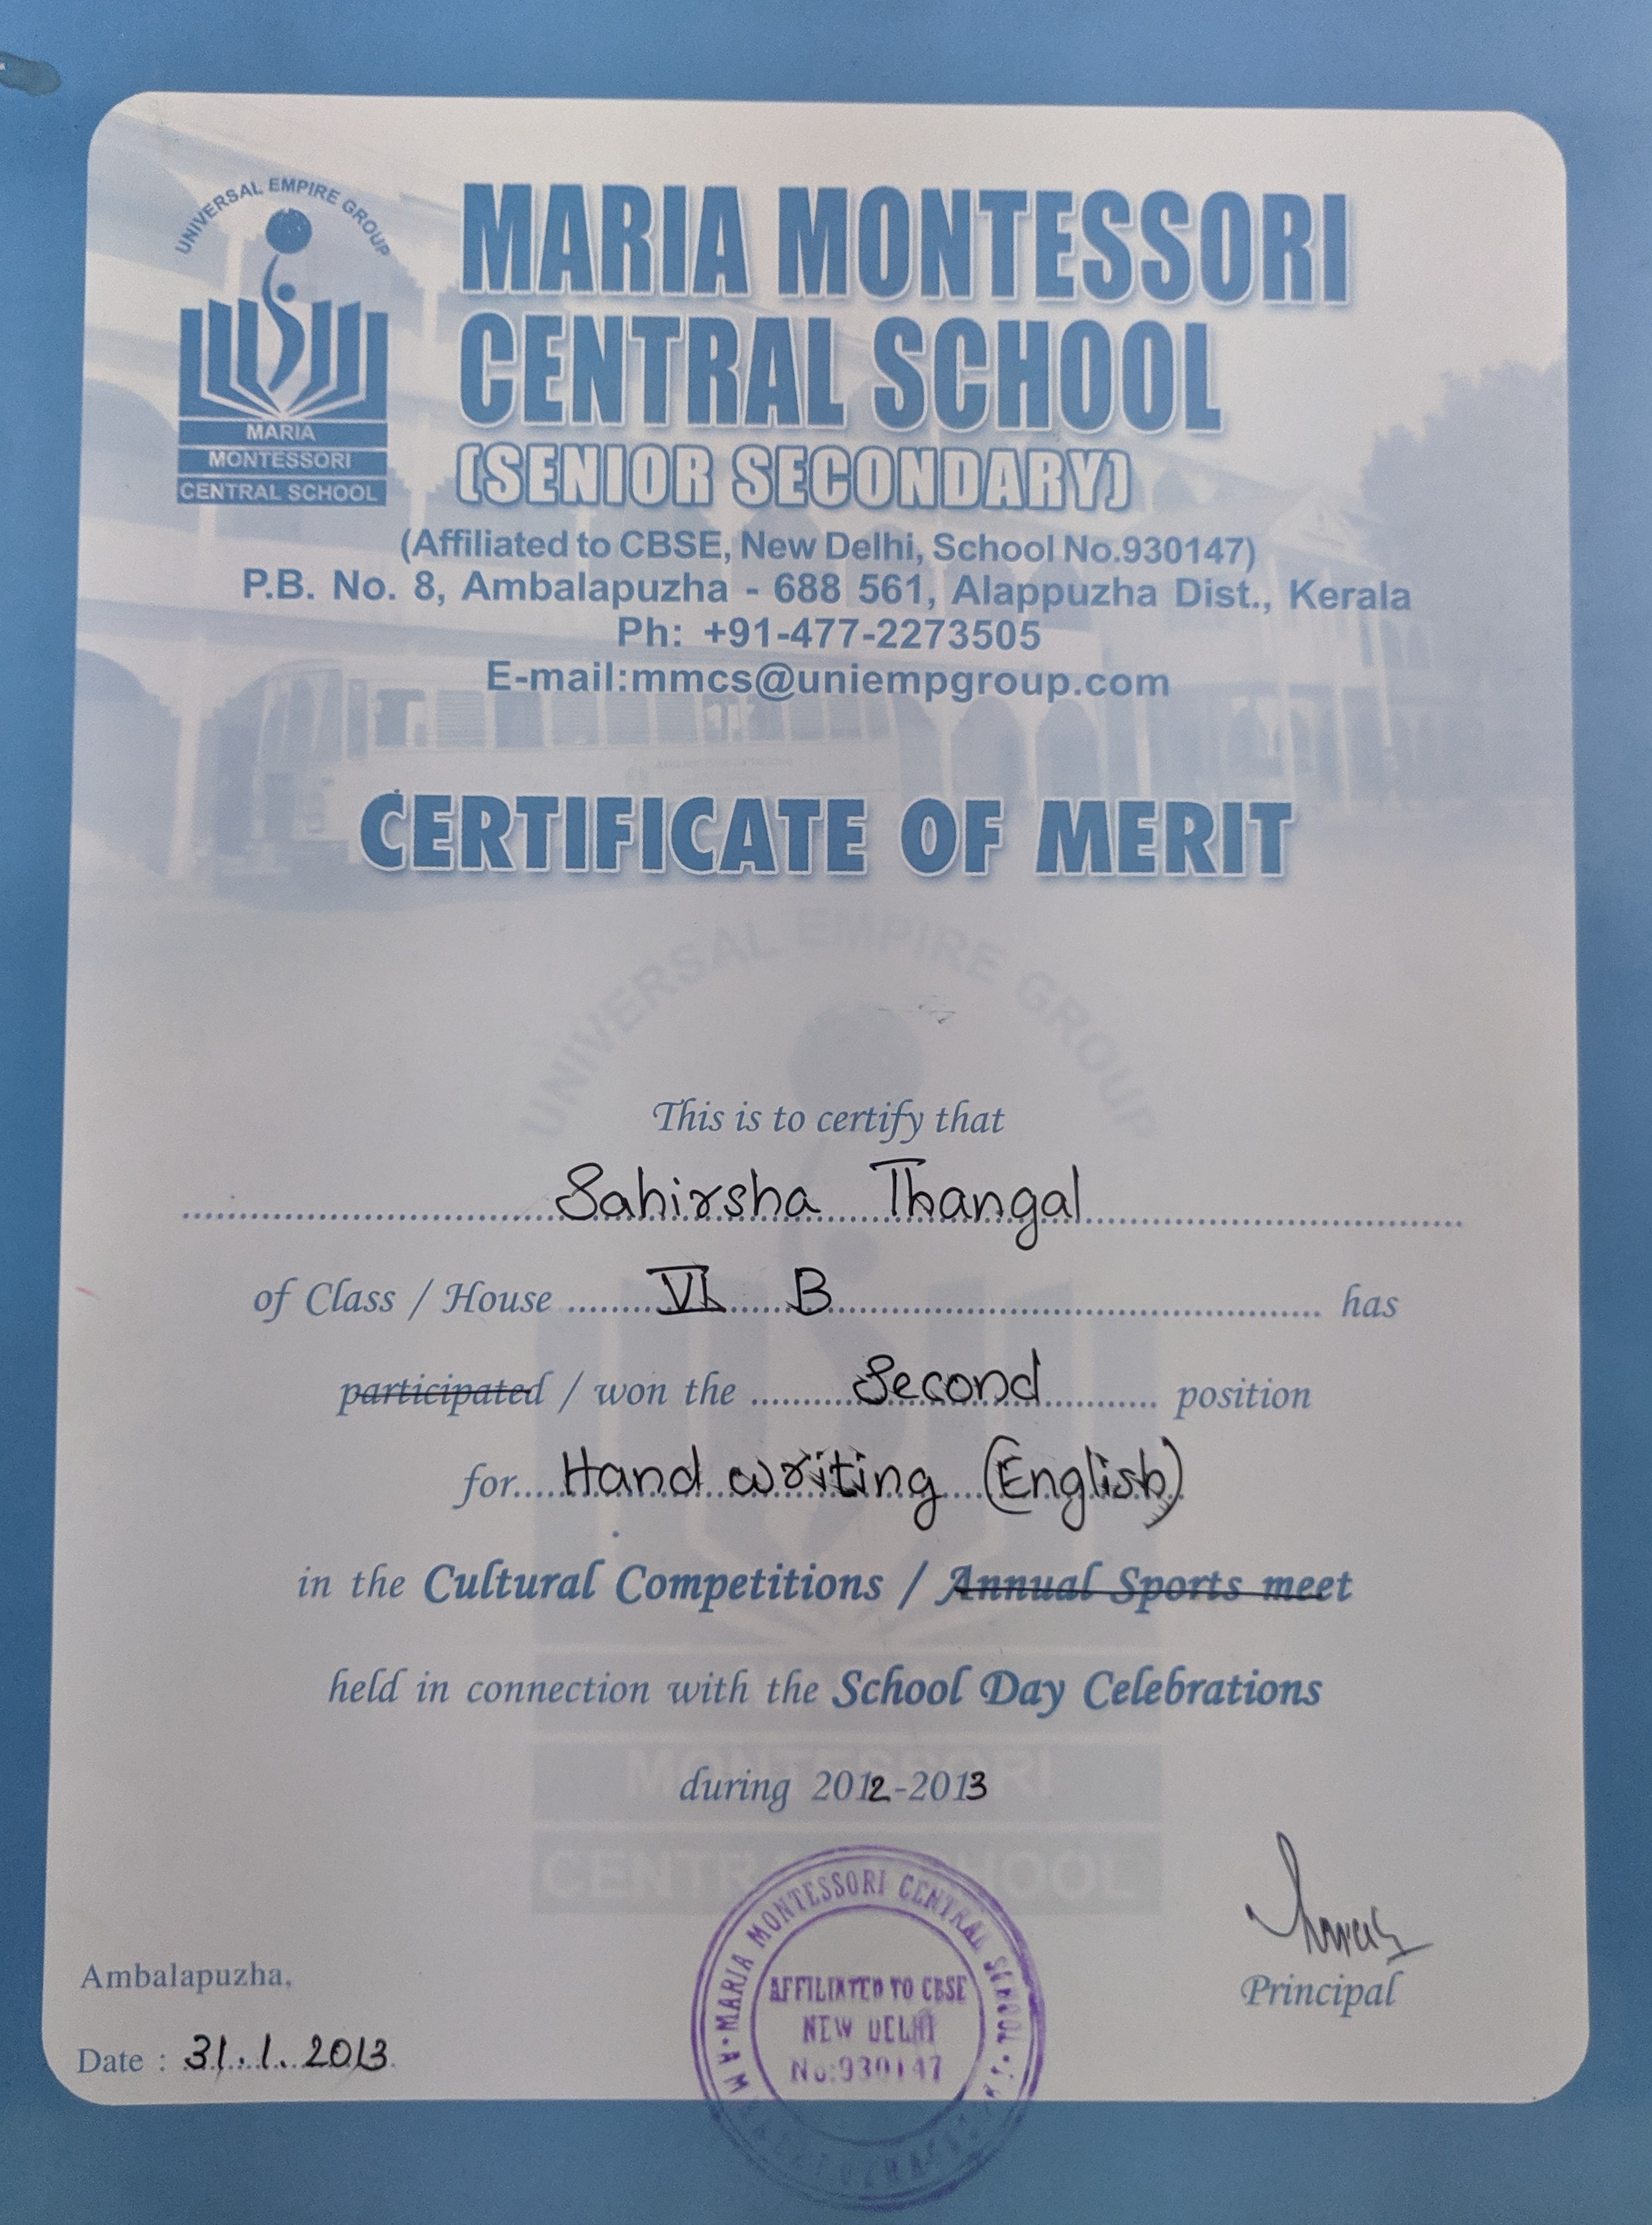 UNIVERSAL EMPIRE GROUP
MARIA
MONTESSORI
CENTRAL SCHOOL
MARIA MONTESSORI
CENTRAL SCHOOL
(SENIOR SECONDARY)
(Affiliated to CBSE, New Delhi, School No.930147)
P.B. No. 8, Ambalapuzha - 688 561, Alappuzha Dist., Kerala
Ph: +91-477-2273505
E-mail:mmcs@uniempgroup.com
CERTIFICATE OF MERIT
UNIVERSAL EMPIRE GROUP
This is to certify that
Sahirsha Thangal
of Class / House VI B has
participated / won the Second position
for Hand writing (English)
in the Cultural Competitions / Annual Sports meet
held in connection with the School Day Celebrations
MONTESSORI
during 2012-2013
CENTRAL SCHOOL
MARIA MONTESSORI CENTRAL SCHOOL
AFFILIATED TO CBSE
NEW DELHI
No:930147
Principal
Ambalapuzha,
Date : 31.1.2013